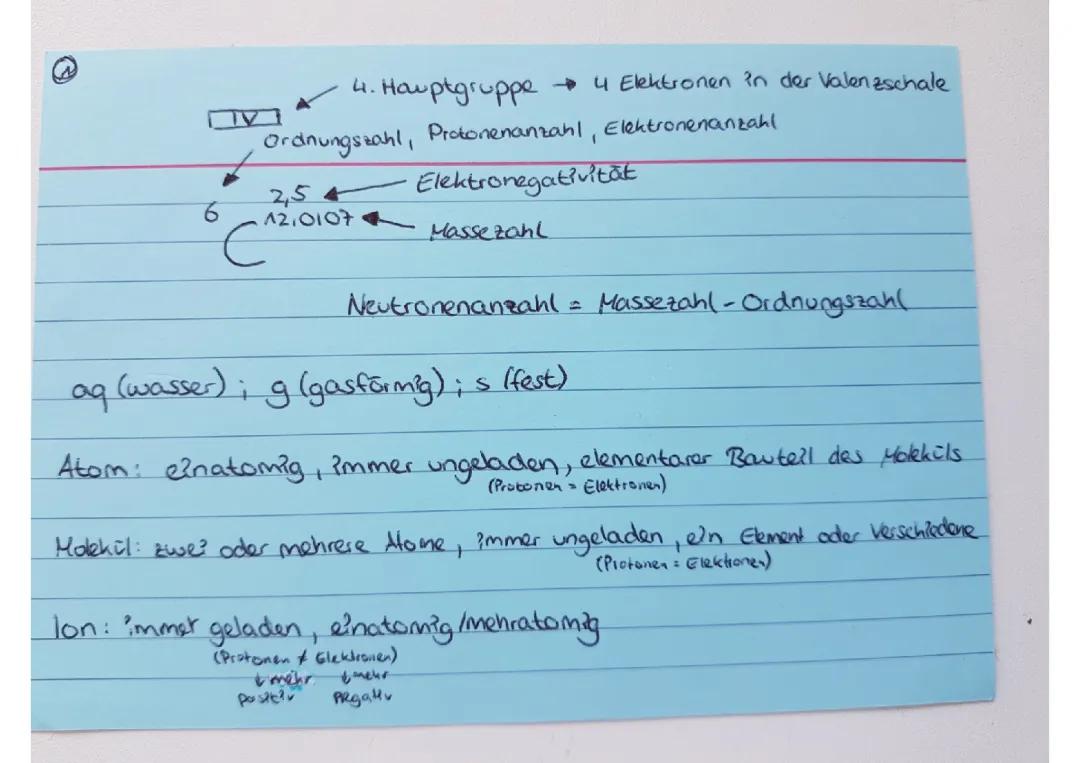 1
4. Hauptgruppe → 4 Elektronen in der Valenzschale
IV
Ordnungszahl, Protonenanzahl, Elektronenanzahl
2,5 Elektronegativität
6
12,0107 Massezahl
C
Neutronenanzahl = Massezahl - Ordnungszahl
aq (wasser); g (gasförmig); s (fest)
Atom: einatomig, immer ungeladen, elementarer Bauteil des Moleküls
(Protonen = Elektronen)
Molekül: zwei oder mehrere Atome, immer ungeladen, ein Element oder Verschiedene
(Protonen = Elektronen)
Ion: immer geladen, einatomig/mehratomig
(Protonen ≠ Elektronen)
↓ mehr ↓ mehr
positiv negativ